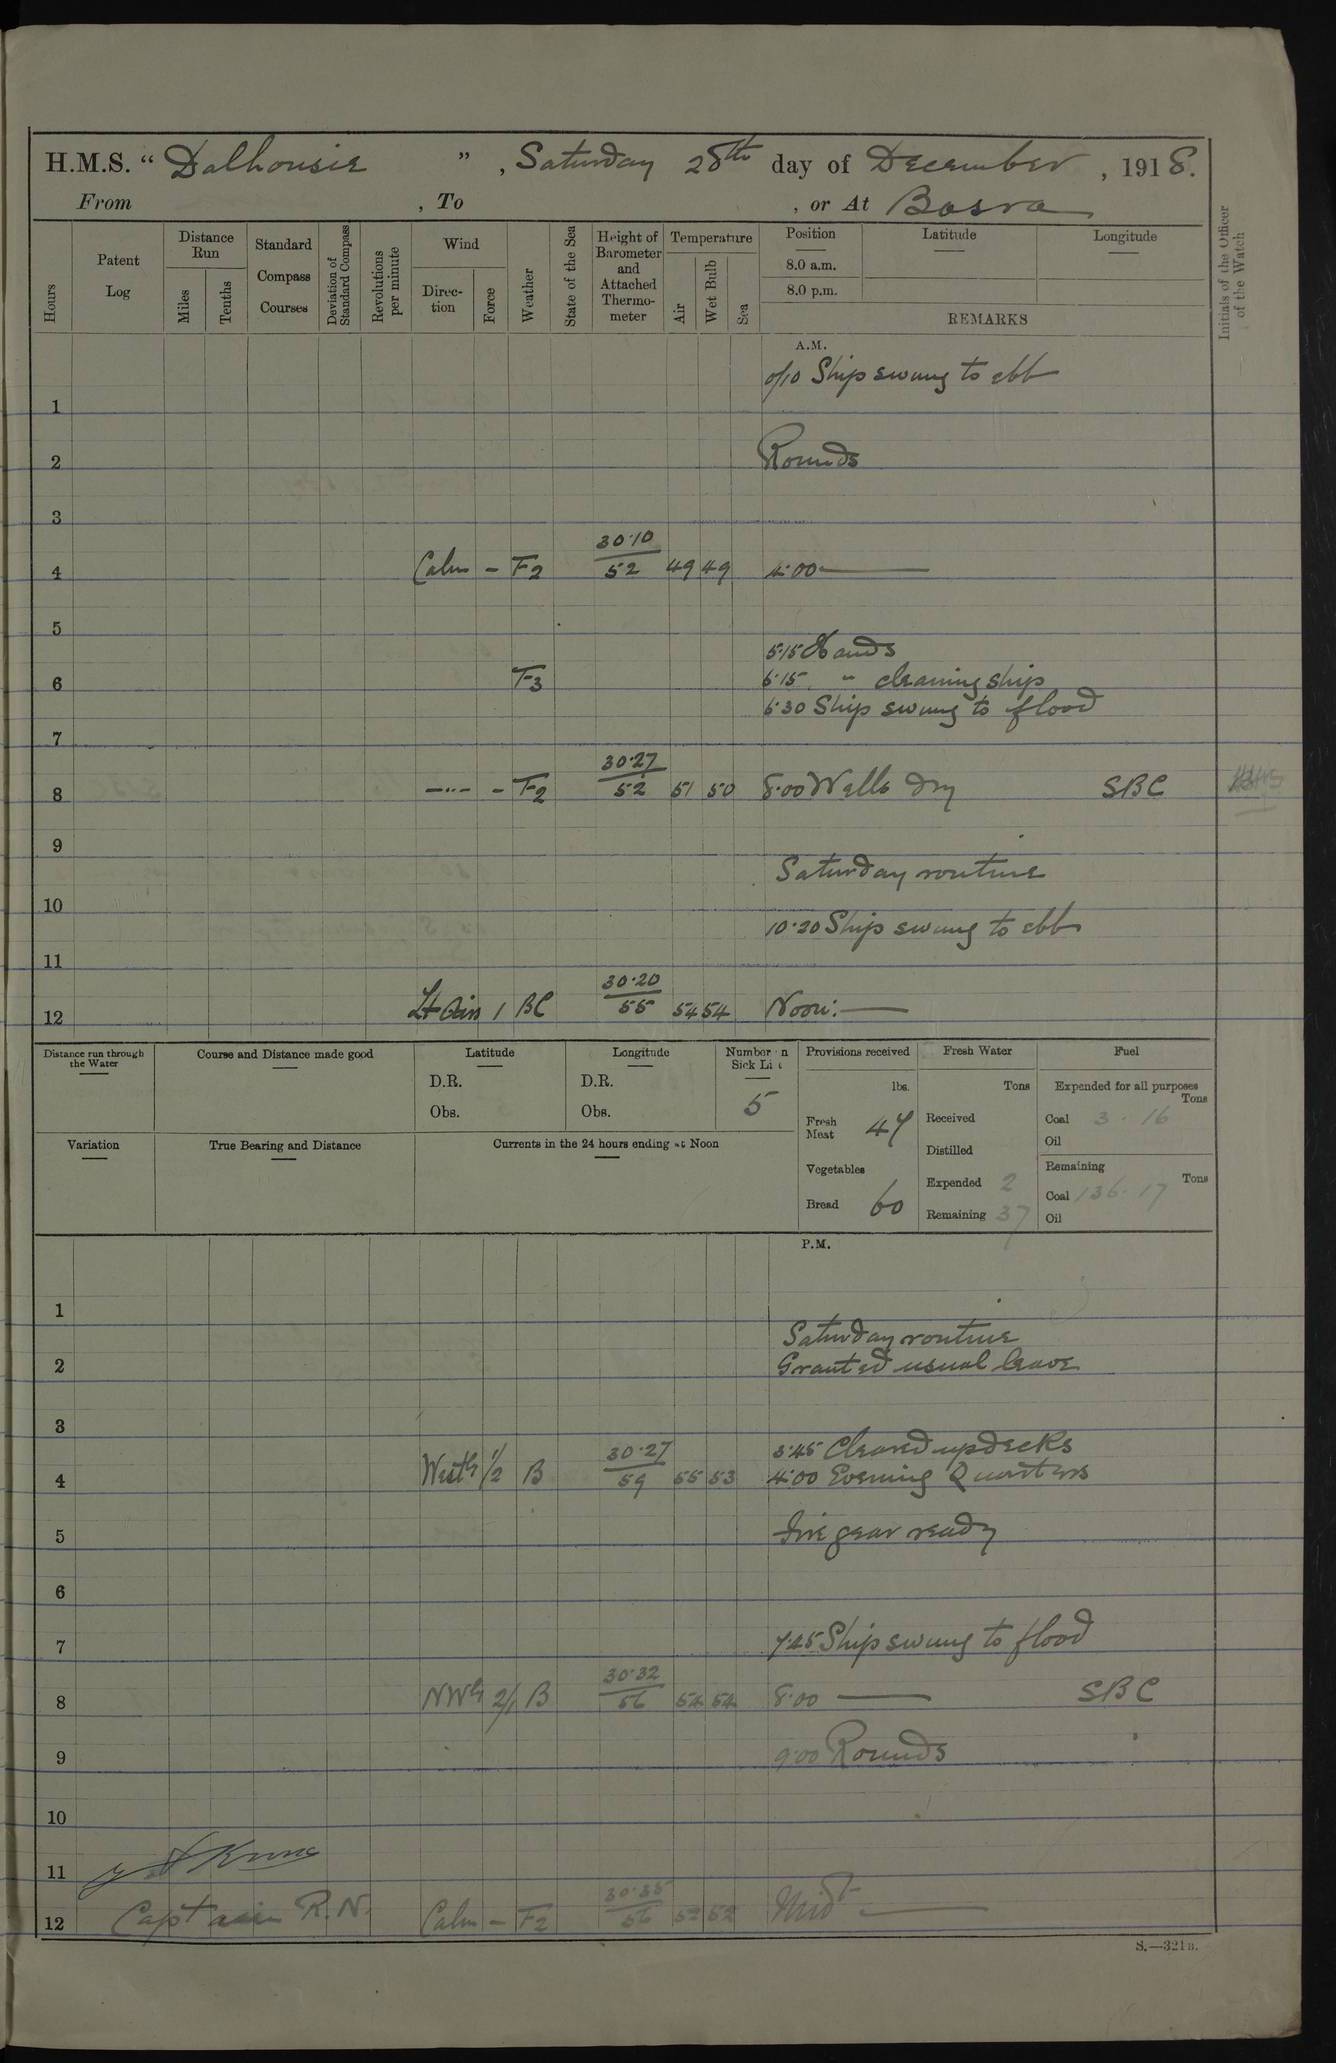 H.M.S. “ Dalhousie ” , Saturday 28th day of December , 1918.
From , To , or At Basra
Hours
Patent Log
Distance Run
Miles
Tenths
Standard Compass Courses
Deviation of Standard Compass
Revolutions per minute
Wind
Direction
Force
Weather
State of the Sea
Height of Barometer and Attached Thermometer
Temperature
Air
Wet Bulb
Sea
Position
8.0 a.m.
8.0 p.m.
Latitude
Longitude
REMARKS
Initials of the Officer of the Watch
A.M.
0/10 Ship swung to ebb
1
2 Rounds
3
4 Calm - F2 30.10/52 49 49 4.00 —
5
5.15 Hands
6 F3 6.15 " cleaning ship
6.30 Ship swung to flood
7
8 -"- - F2 30.27/52 51 50 8.00 Wells dry SBC
9
Saturday routine
10
10.20 Ship swung to ebb
11
12 Lt Airs 1 BC 30.20/55 54 54 Noon: —
Distance run through the Water
Course and Distance made good
Latitude
D.R.
Obs.
Longitude
D.R.
Obs.
Number on Sick List
5
Provisions received
lbs.
Fresh Meat 47
Vegetables
Bread 60
Fresh Water
Tons
Received
Distilled
Expended 2
Remaining 37
Fuel
Expended for all purposes
Tons
Coal 3 . 16
Oil
Remaining
Tons
Coal 136 . 17
Oil
Variation
True Bearing and Distance
Currents in the 24 hours ending at Noon
P.M.
1
Saturday routine
2 Granted usual leave
3
3.45 Cleared up decks
4 Westly 1/2 B 30.27/59 55 53 4.00 Evening Quarters
5 Fire gear ready
6
7 7.45 Ship swung to flood
8 NWly 2/1 B 30.32/56 54 54 8.00 — SBC
9 9.00 Rounds
10
11
Captain R.N.
12 Calm - F2 30.35/56 52 52 Midt —
S.—321B.